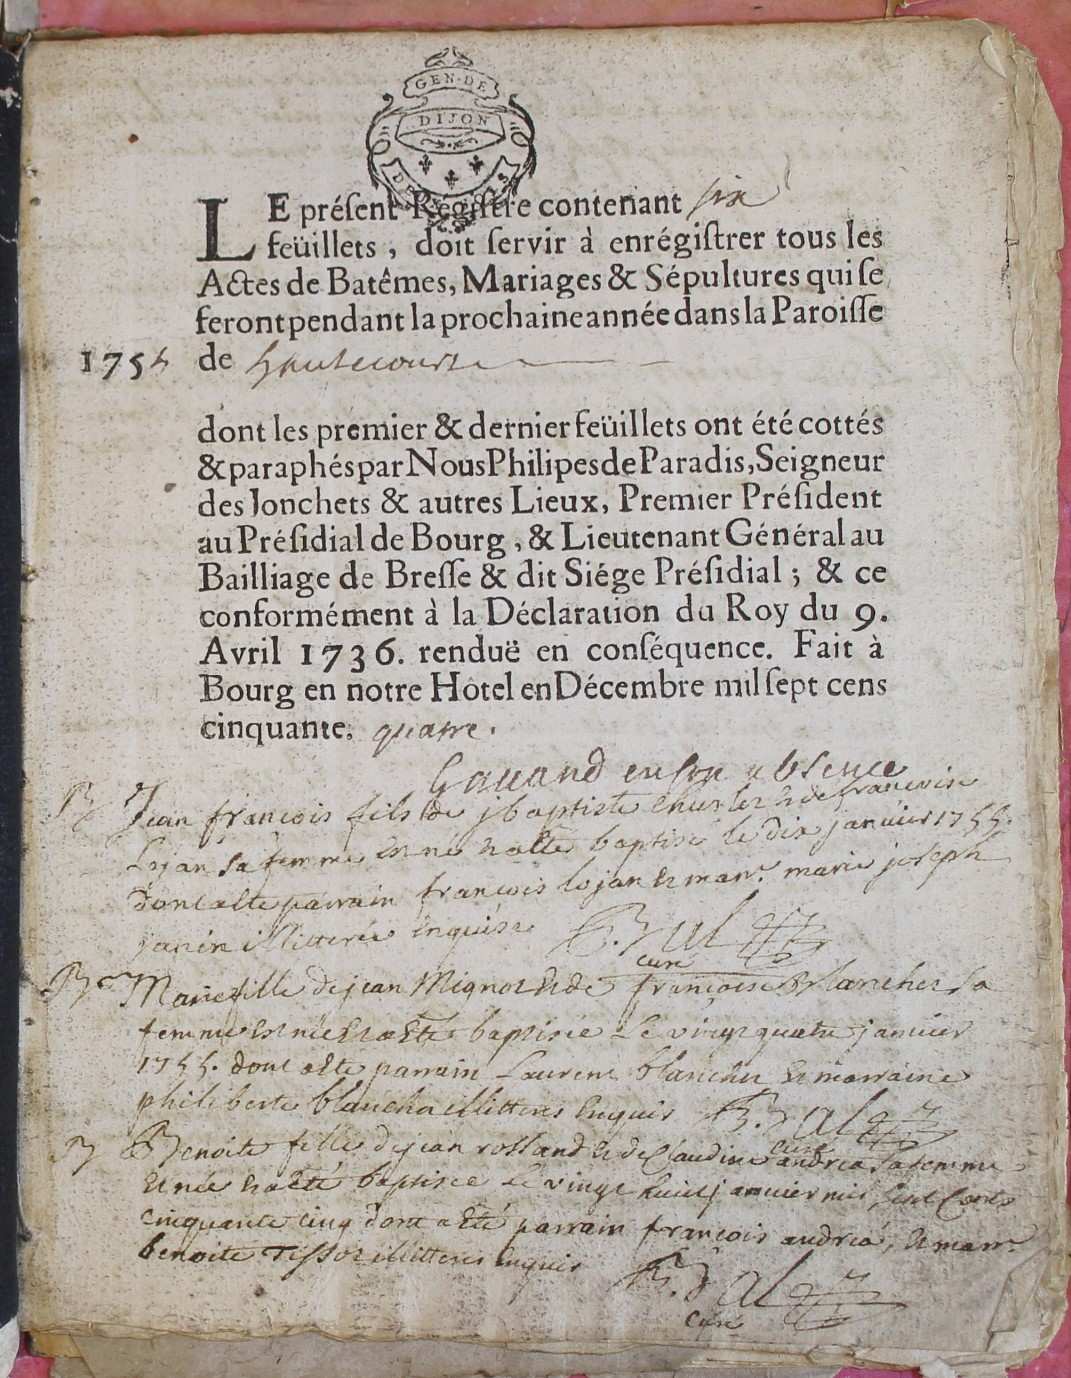 GEN·DE
DIJON
LE préſent Régiſtre contenant six
feüillets, doit ſervir à enrégiſtrer tous les
Actes de Batêmes, Mariages & Sépultures qui ſe
feront pendant la prochaine année dans la Paroiſſe
1755 de hautecourt
dont les premier & dernier feüillets ont été cottés
& paraphés par Nous Philipes de Paradis, Seigneur
des Jonchets & autres Lieux, Premier Préſident
au Préſidial de Bourg, & Lieutenant Général au
Bailliage de Breſſe & dit Siége Préſidial; & ce
conformément à la Déclaration du Roy du 9.
Avril 1736. renduë en conſéquence. Fait à
Bourg en notre Hôtel en Décembre mil ſept cens
cinquante. quatre.
Gauand en son absence
B Jean françois fils de j baptiste Charlet & de françoise
lojan sa femme est né et a été baptisé le dix janvier 1755.
dont a été parrain françois lojan et marr. marie joseph
janin illitterés enquis
curé
B Marie fille de jean Mignot et de françoise Blanchet sa
femme est née et a été baptisée le vingt quatre janvier
1755. dont a été parrain Laurent blanchet et marraine
philiberte blanchet illitterés enquis
curé
B Benoite fille de jean rolland et de Claudine andréa sa femme
est née et a été baptisée le vingt huit janvier mil sept Cents
cinquante cinq dont a été parrain françois andréa, et marr.
benoite Tissot illitterés enquis
curé